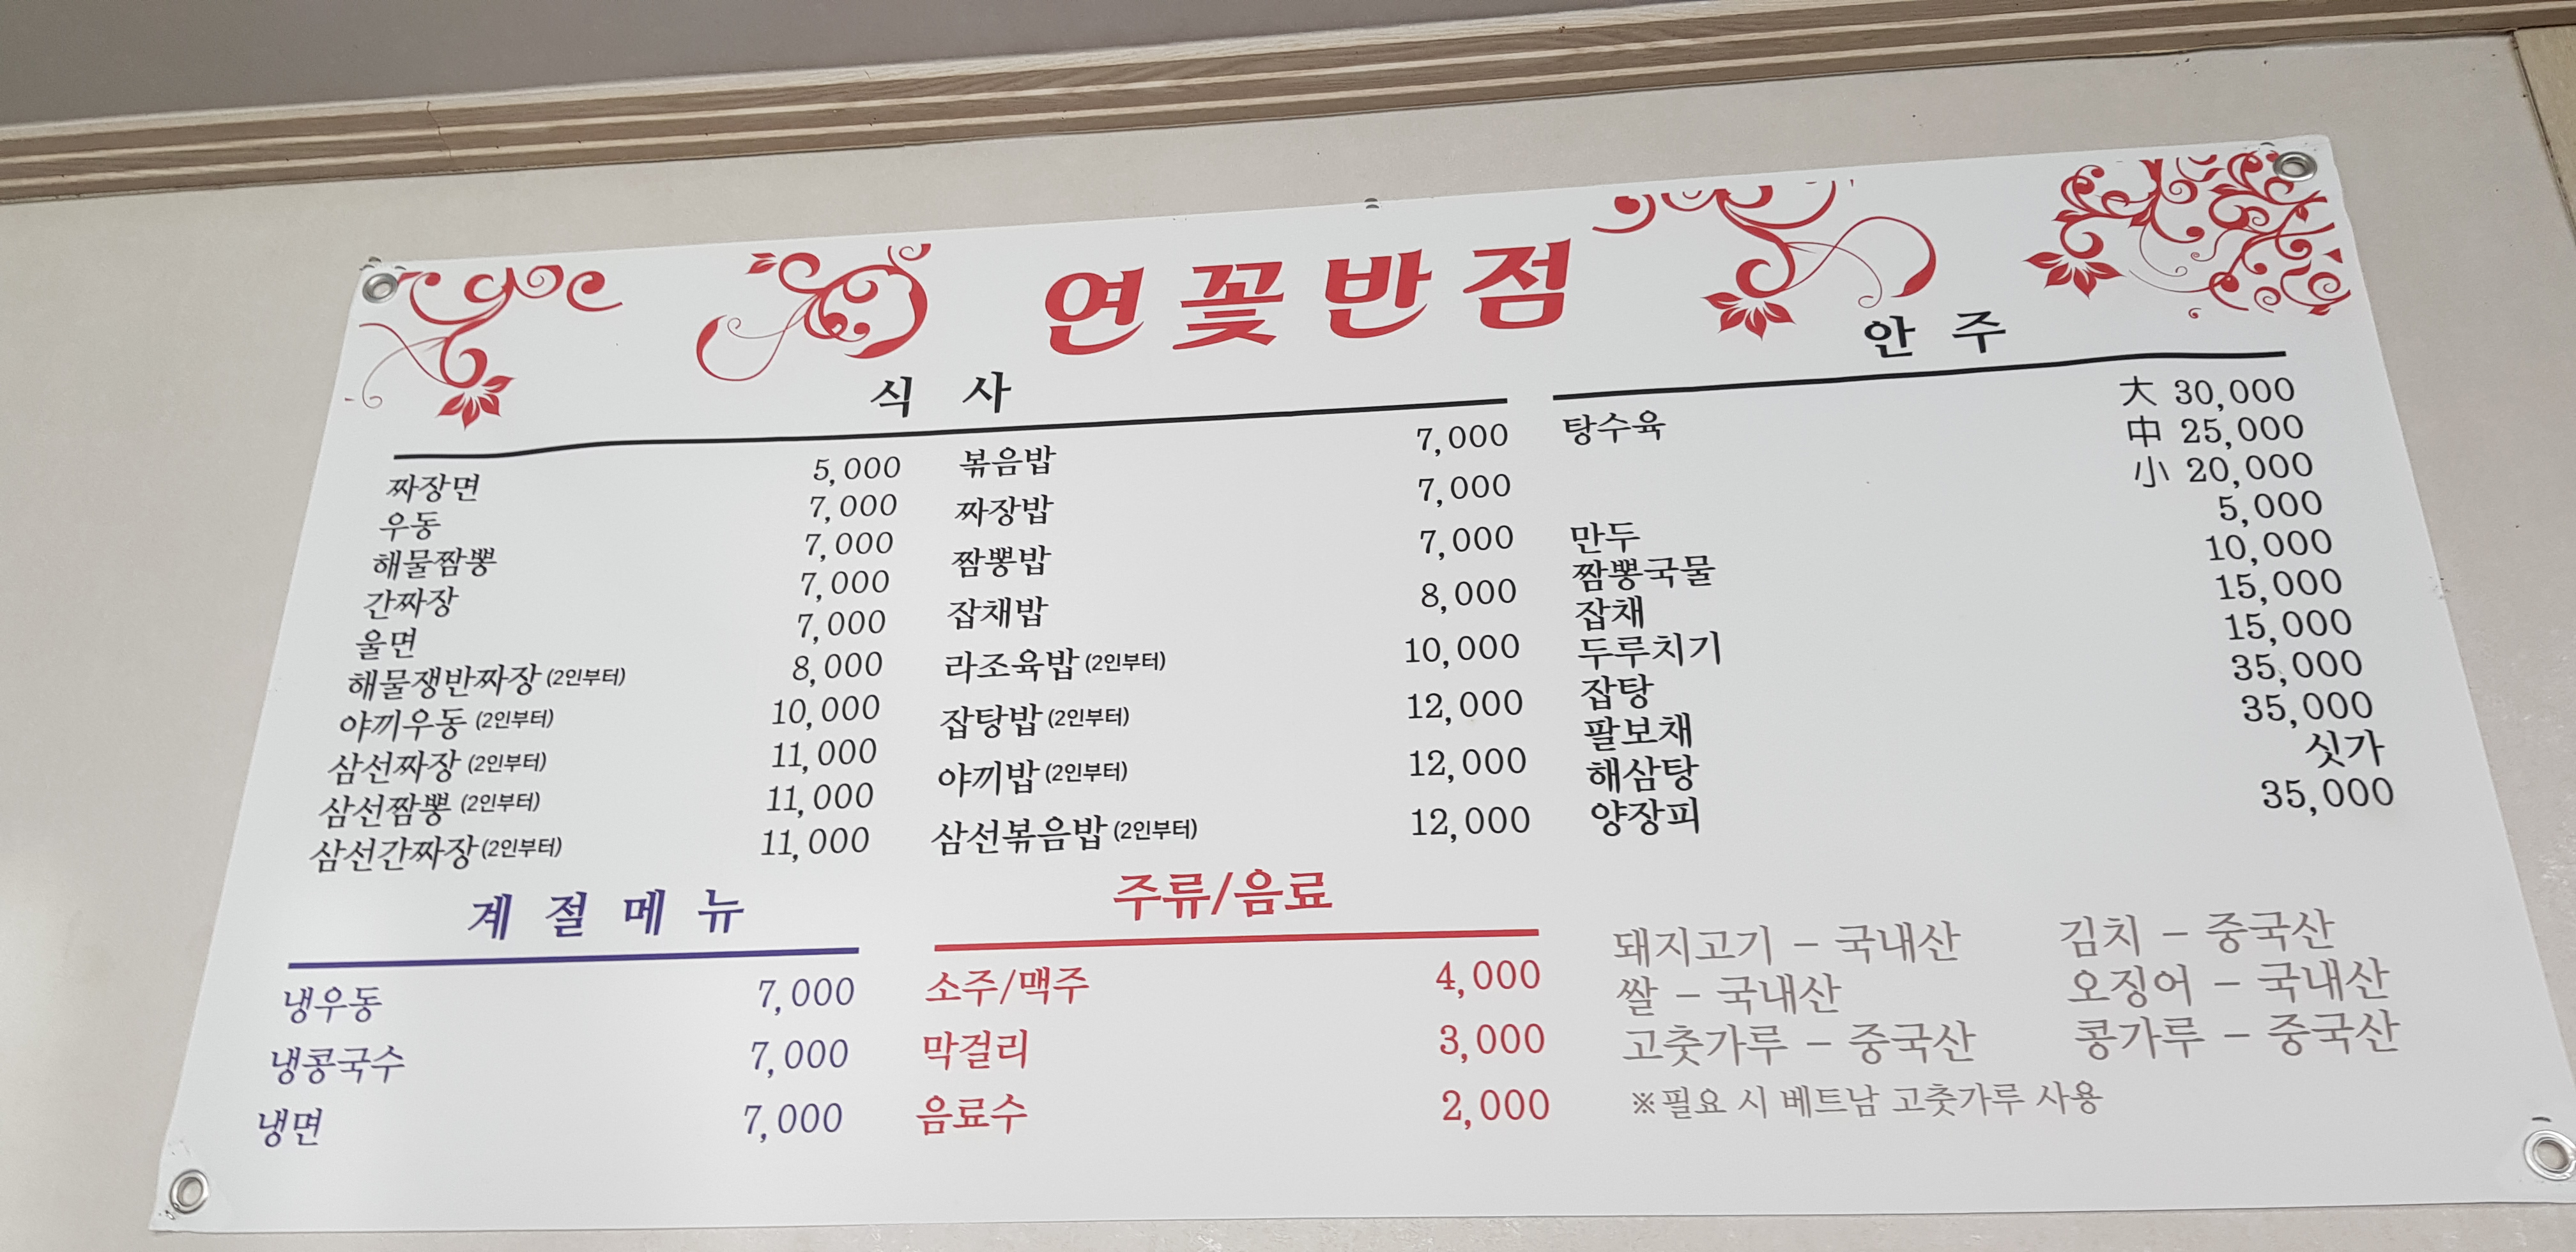 연꽃반점
식 사
짜장면 5,000
우동 7,000
해물짬뽕 7,000
간짜장 7,000
울면 7,000
해물쟁반짜장 (2인부터) 8,000
야끼우동 (2인부터) 10,000
삼선짜장 (2인부터) 11,000
삼선짬뽕 (2인부터) 11,000
삼선간짜장 (2인부터) 11,000
볶음밥 7,000
짜장밥 7,000
짬뽕밥 7,000
잡채밥 8,000
라조육밥 (2인부터) 10,000
잡탕밥 (2인부터) 12,000
야끼밥 (2인부터) 12,000
삼선볶음밥 (2인부터) 12,000
안 주
탕수육 大 30,000
中 25,000
小 20,000
만두 5,000
짬뽕국물 10,000
잡채 15,000
두루치기 15,000
잡탕 35,000
팔보채 35,000
해삼탕 싯가
양장피 35,000
계 절 메 뉴
냉우동 7,000
냉콩국수 7,000
냉면 7,000
주류/음료
소주/맥주 4,000
막걸리 3,000
음료수 2,000
돼지고기 - 국내산 김치 - 중국산
쌀 - 국내산 오징어 - 국내산
고춧가루 - 중국산 콩가루 - 중국산
※필요 시 베트남 고춧가루 사용